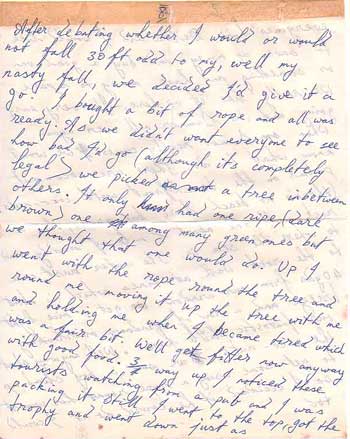 After debating whether I would or would
not fall 30 ft odd to my, well my
nasty fall, we decided I'd give it a
go. I bought a bit of rope and all was
ready. As we didn't want everyone to see
how bad I'd go (although its completely
legal) we picked a tree inbetween
others. It only had one ripe, (dark
brown) one among many green ones but
we thought that one would do. Up I
went with the rope round the tree and
round me moving it up the tree with me
and holding me when I became tired which
was a fair bit. We'll get fitter now anyway
with good food. 3/4 way up I noticed these
tourists watching from a pub and I was
packing it. Still I went to the top, got the
trophy and went down just as